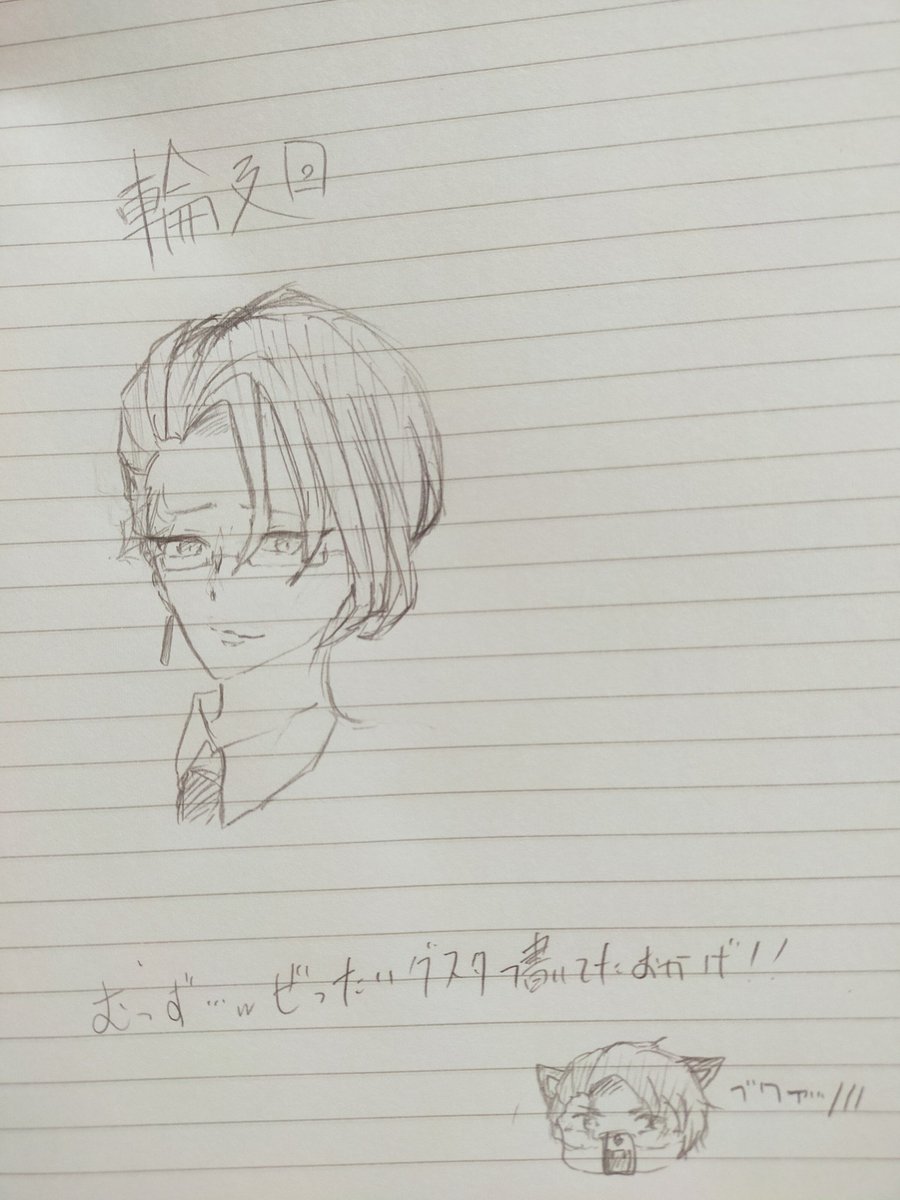 輪廻
むっず…w ぜったいグスタ書いてたおかげ!!
ブワァ…///